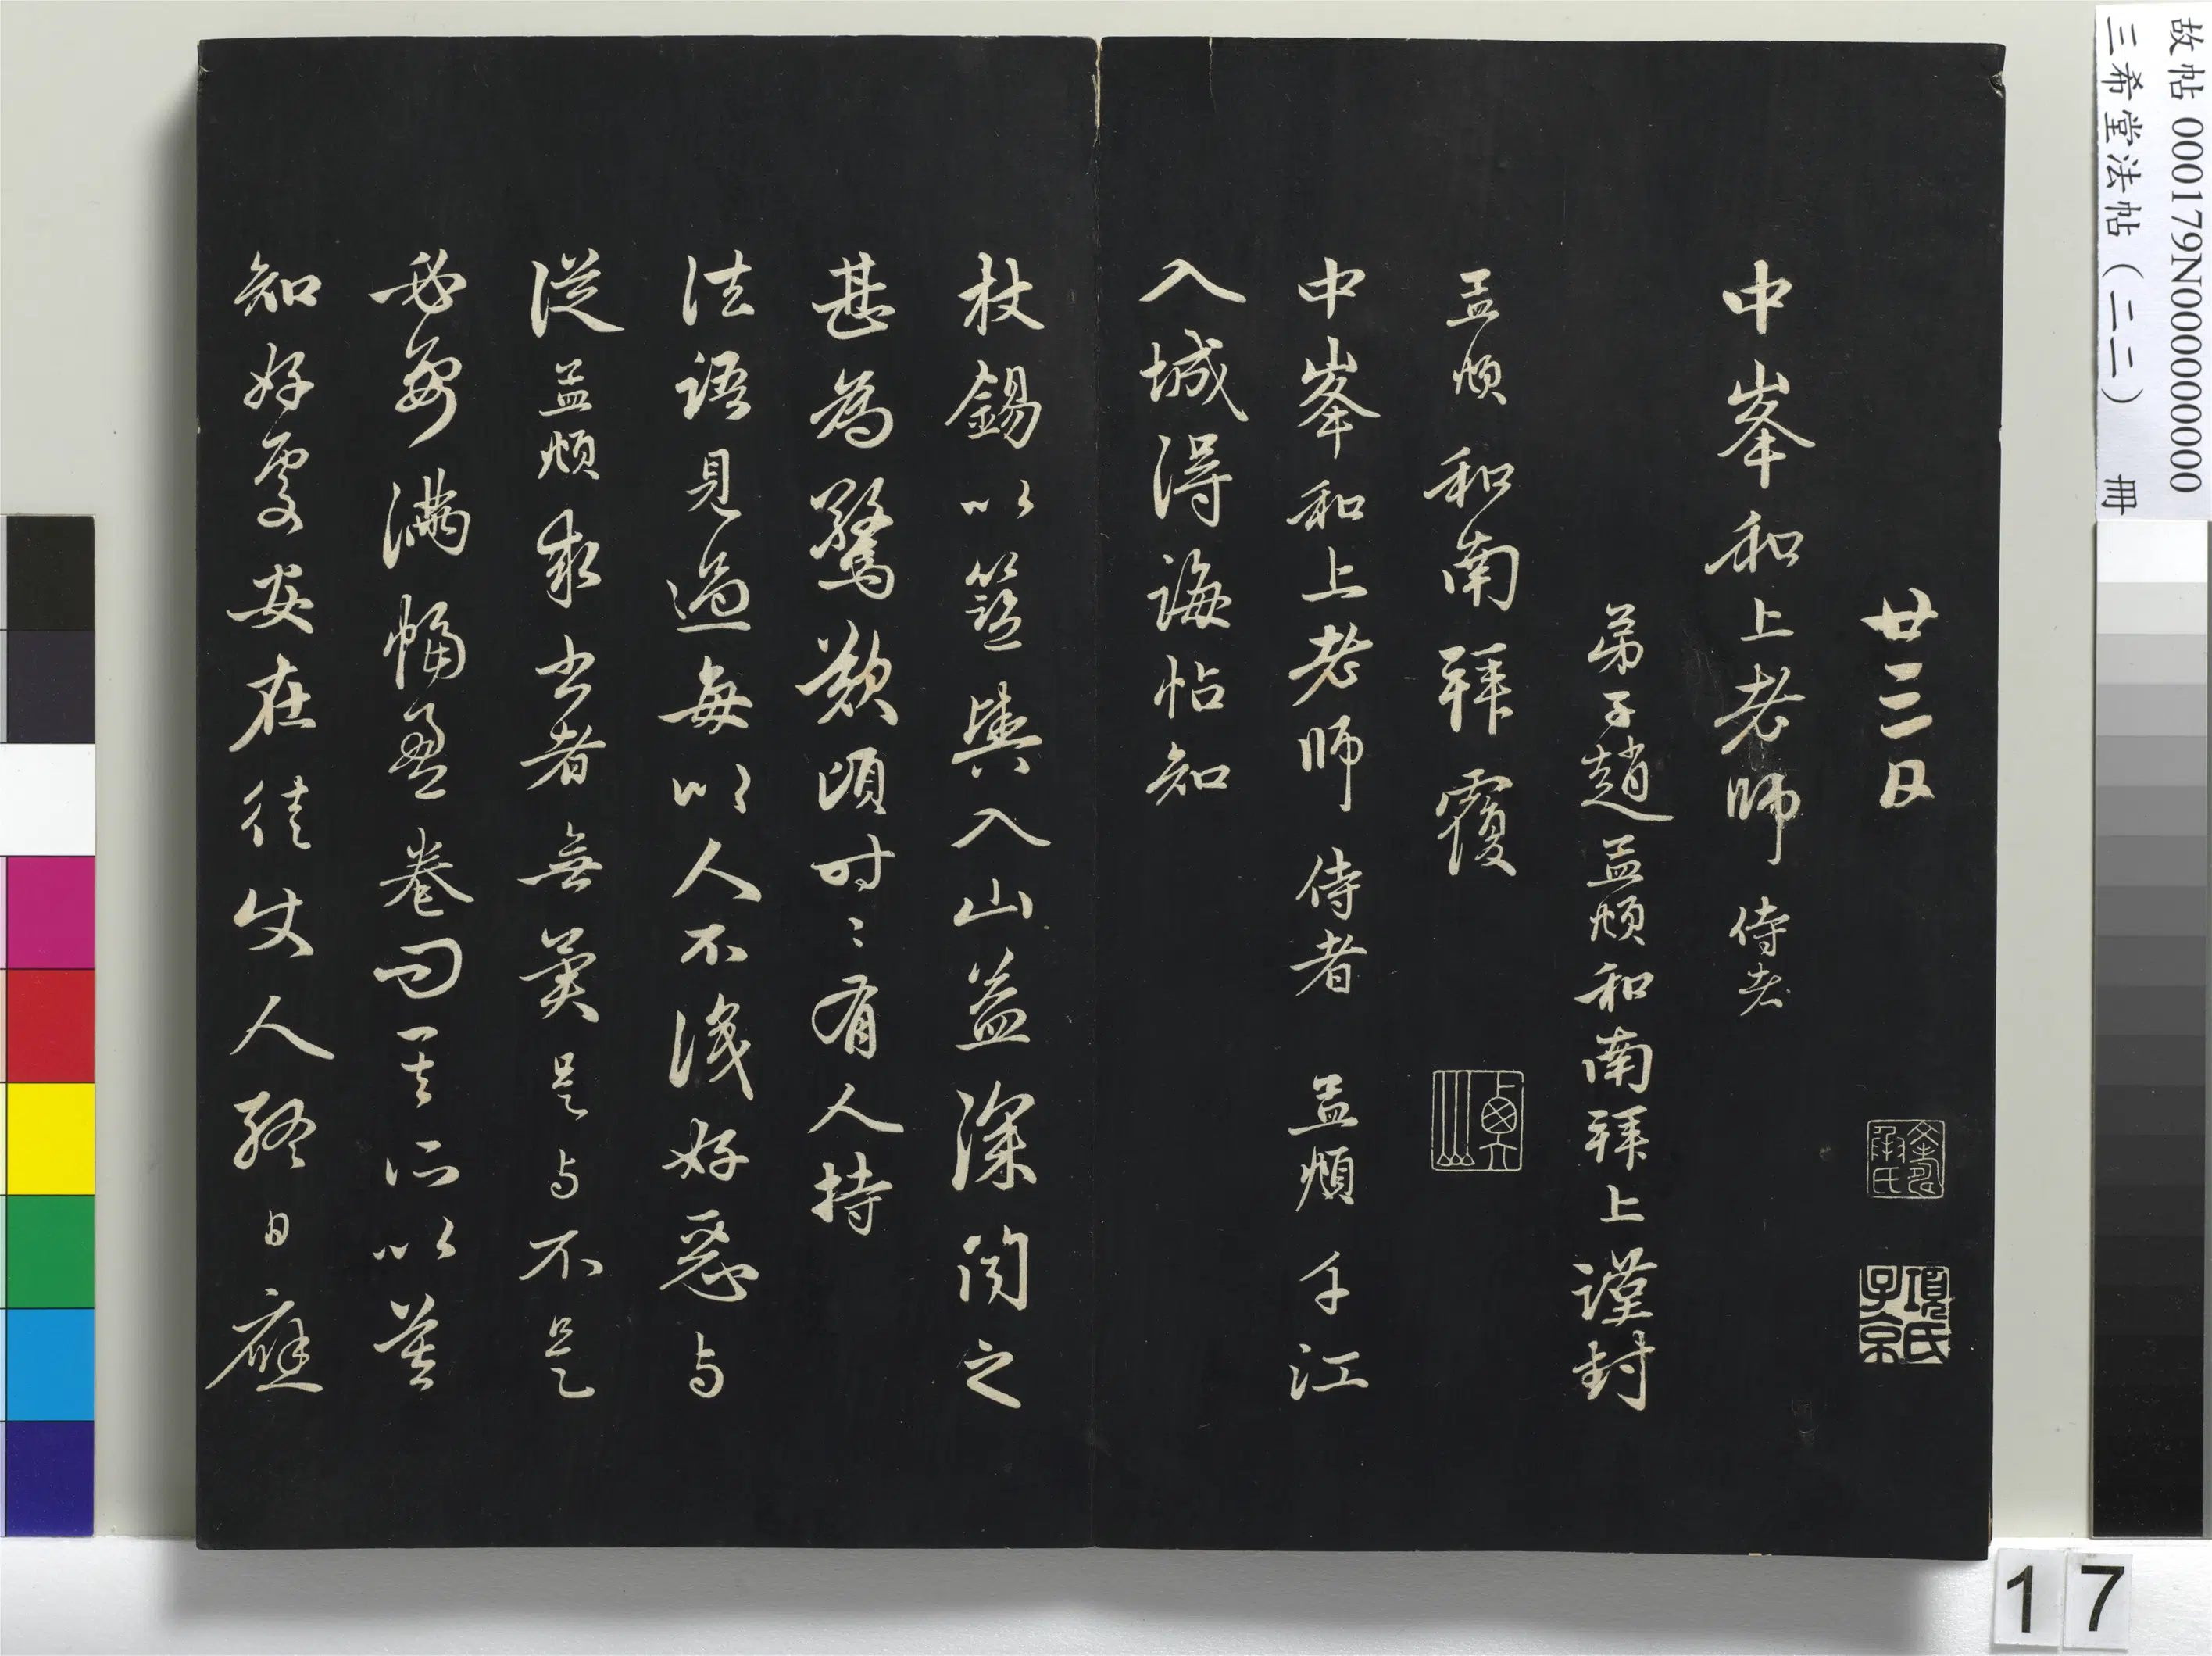 故帖 000179N000000000
三希堂法帖（二二） 冊
廿三日
中峯和上老師 侍者
弟子趙孟頫和南拜上謹封
孟頫和南拜覆
中峯和上老師 侍者 孟頫 手江
入城得誨帖知
杖錫以籃輿入山益深聞之
甚為驚歎頃時〻有人持
法語見過每以人不識好惡与
從孟頫求書者無異是与不是
必要滿幅盈卷問其所以莫
知好處安在徒使人終日應
項氏子京
17